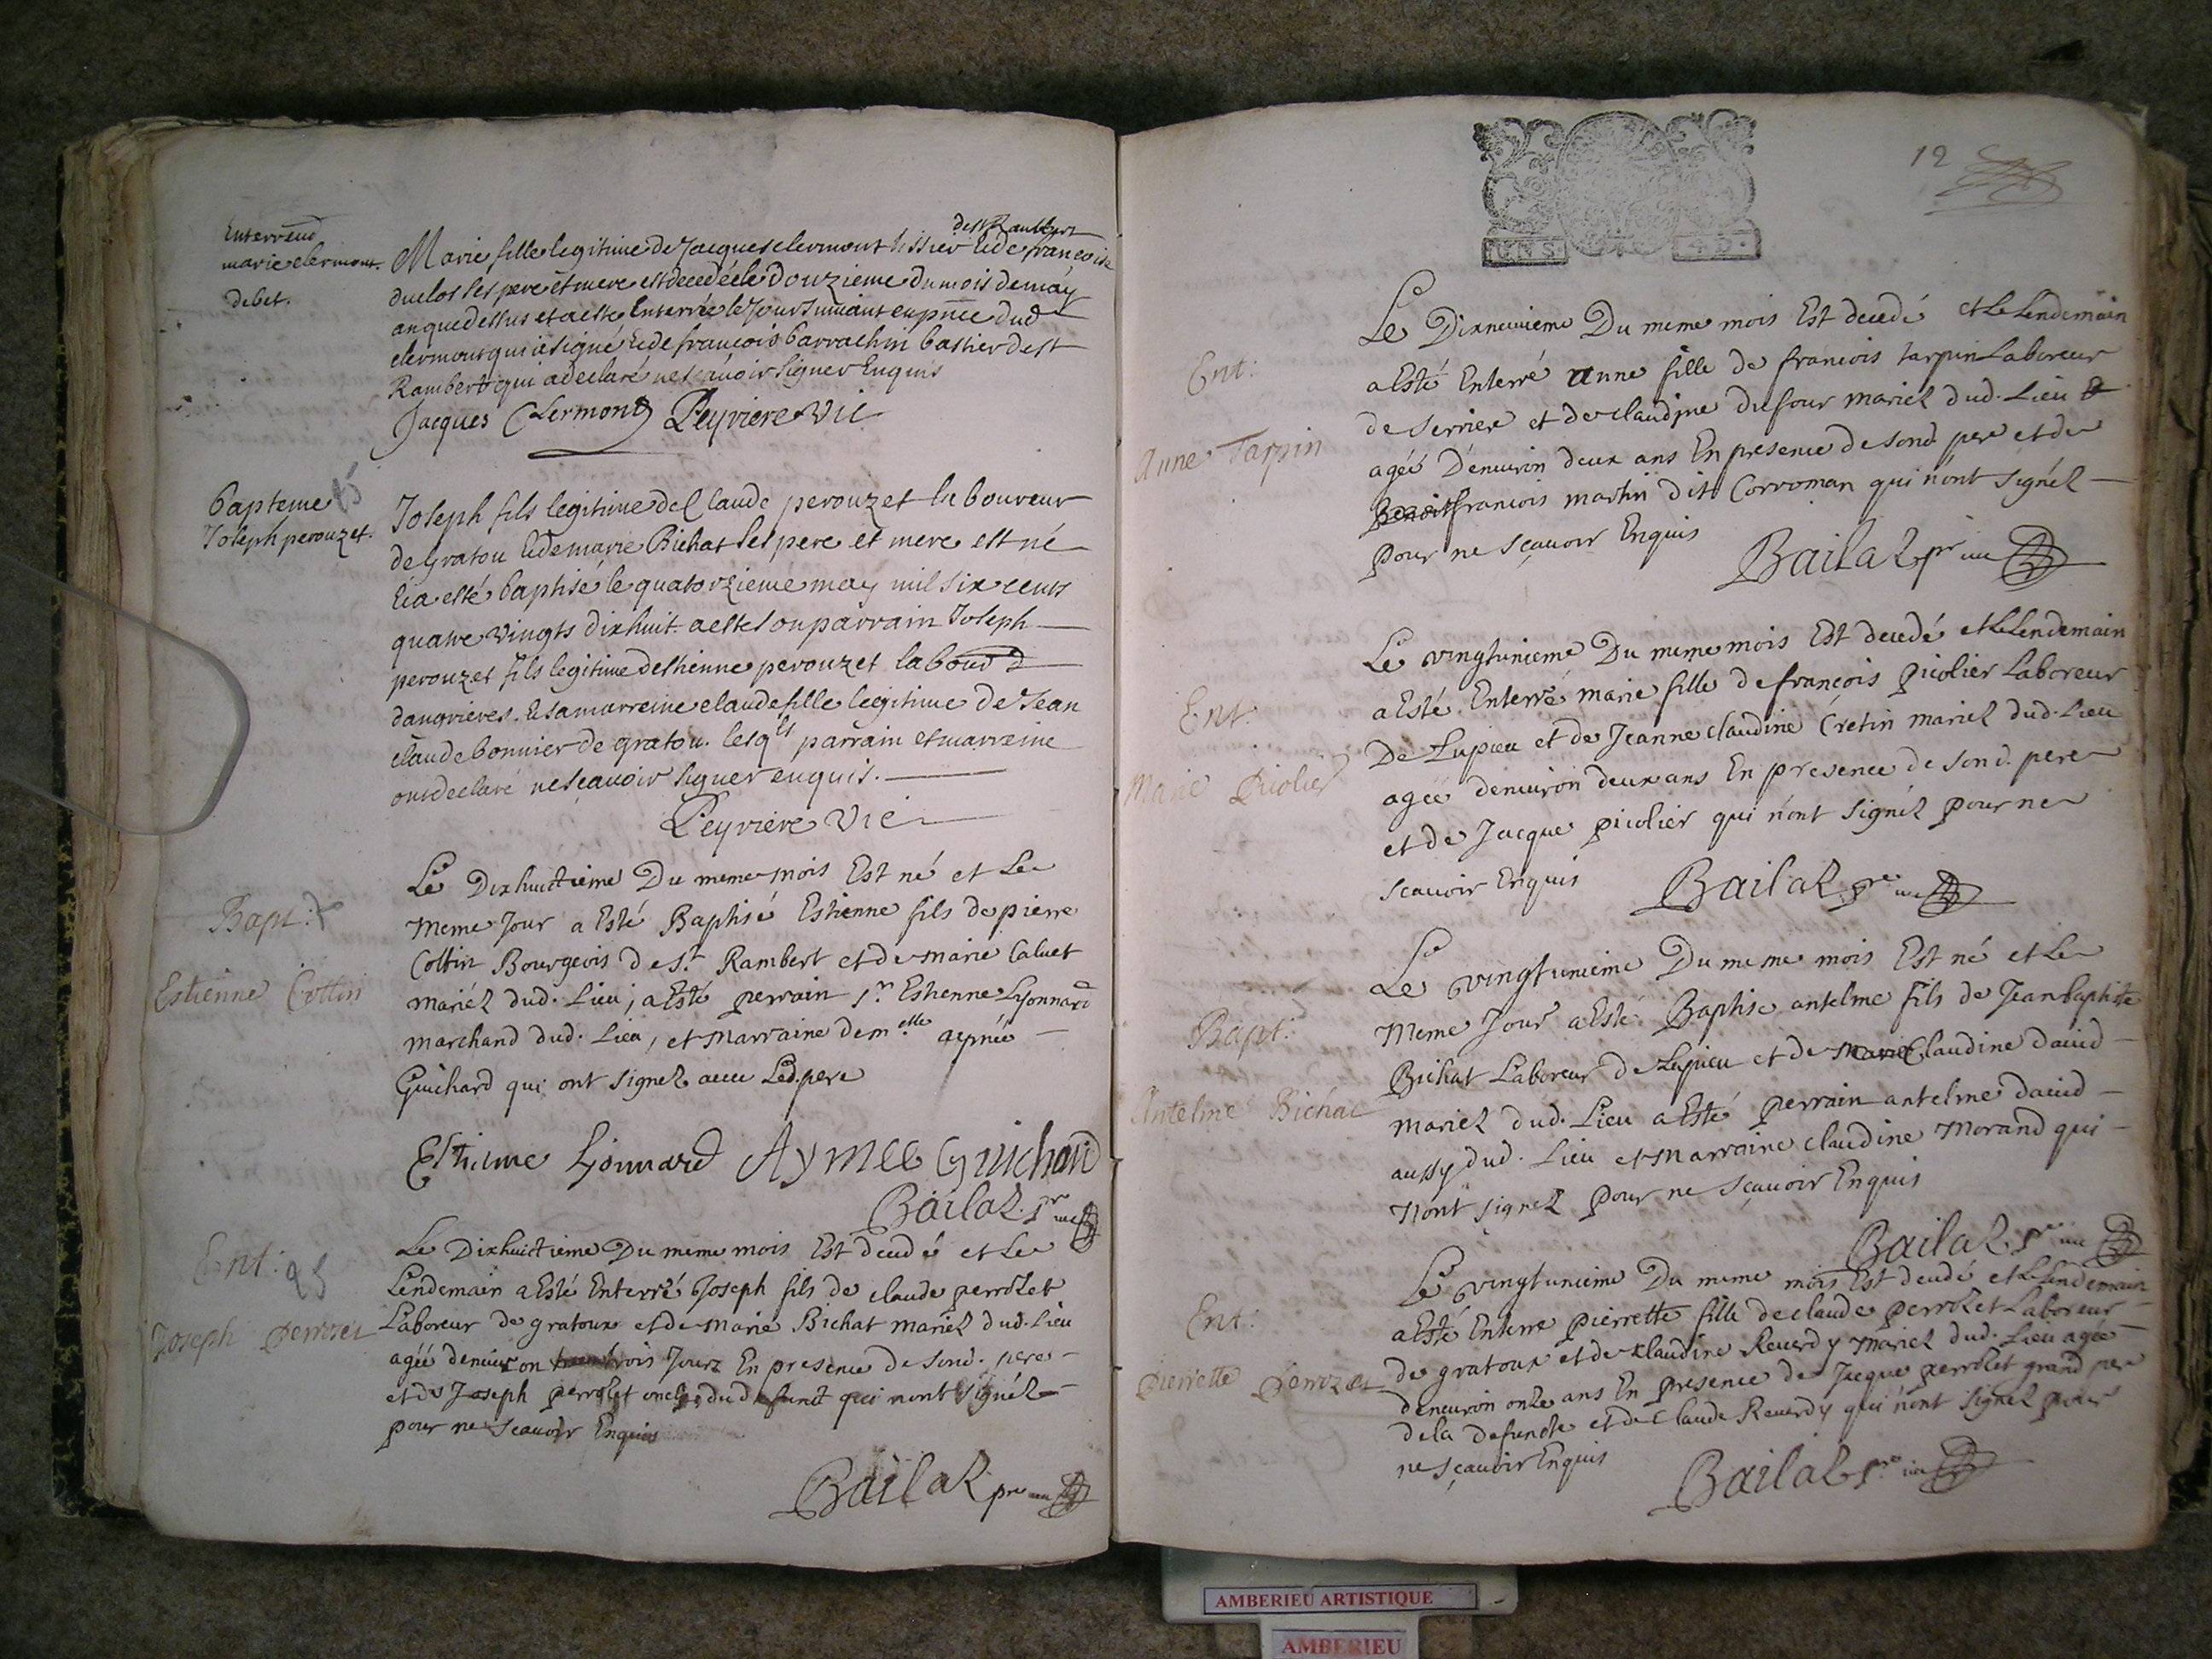 Enterremt
marie clermont.
debet.
de st Rambert
Marie fille legitime de Jacques clermont tissier & de francoise
duclos ses pere et mere est decedée le douzieme du mois de may
an que dessus et a esté Enterrée le Jour suivant en pnce dud
clermont qui a signé & de francois barrachin bastier de st
Rambert qui a declaré ne scavoir signer Enquis
Jacques Clermont Peyriere vic
bapteme
Joseph perouzet.
Joseph fils legitime de Claude perouzet laboureur
de Gratou & de marie Bichat ses pere et mere est né
& a esté baptisé le quatorzieme may mil six cents
quatre vingts dixhuit. a esté son parrain Joseph
perouzet fils legitime destienne perouzet labourd
dangrieres. & sa marreine claude fille legitime de Jean
claude bonnier de gratou. lesqls parrain et marreine
ont declaré ne sçavoir signer enquis.
Peyriere Vic
Bapt:
Estienne Cottin
Le Dixhuictieme Du meme mois Est né et Le
meme Jour a Esté Baptisé Estienne fils de pierre
Cottin Bourgeois de St Rambert et de marie Caluet
mariéz dud. Lieu; a Esté perrain sr Estienne Lyonnard
marchand dud. Lieu, et marraine demelle aymée
Guichard qui ont signez avec Led. pere
Estienne Lyonnard Aymee Guichard
Bailaz pr
Ent: 25
Joseph Perrozet
Le Dixhuictieme Du meme mois Est decedé et Le
Lendemain a Esté Enterré Joseph fils de claude perrozet
Laboreur de gratoux et de marie Bichat mariez dud. Lieu
agée denuiron trois Jours En presence de sond. pere
et de Joseph perrozet oncle dud defunct qui nont signéz
pour ne scauoir Enquis
Bailaz pre
12
Ent:
Anne Tarpin
Le Dixneuuieme Du meme mois Est decedé et Le Lendemain
a Esté Enterré anne fille de francois tarpin Laboreur
de serriere et de claudine dufour mariez dud. Lieu
agée Denuiron deux ans En presence de sond pere et de
Benoit francois martin dit Corroman qui n'ont signéz
pour ne sçauoir Enquis
Bailaz pr
Ent:
Marie Piolier
Le vingtunieme Du meme mois Est decedé et Le Lendemain
a Esté Enterré marie fille de françois piolier Laboreur
De Lupieu et de Jeanne claudine Cretin mariez dud. Lieu
agée denuiron deux ans En presence de sond. pere
et de Jacque piolier qui n'ont signéz pour ne
scauoir Enquis
Bailaz pre
Bapt:
Antelme Bichat
Le vingtunieme Du meme mois Est né et Le
meme Jour a Esté Baptisé antelme fils de Jean baptiste
Bichat Laboreur de Lupieu et de Marie Claudine dauid
mariez dud. Lieu a Esté perrain antelme dauid
aussy dud. Lieu et marraine claudine Morand qui
n'ont signez pour ne sçauoir Enquis
Bailaz pre
Ent:
Pierrette Perrozet
Le vingtunieme Du meme mois Est decedé et Le Lendemain
a Esté Enterré pierrette fille de claude perrozet Laboreur
de gratoux et de claudine Reuerdy mariez dud. Lieu agée
denuiron onze ans En presence de Jacque perrozet grand pere
de la defuncte et de Claude Reuerdy qui n'ont signez pour
ne sçauoir Enquis
Bailaz pre
AMBERIEU ARTISTIQUE
AMBERIEU